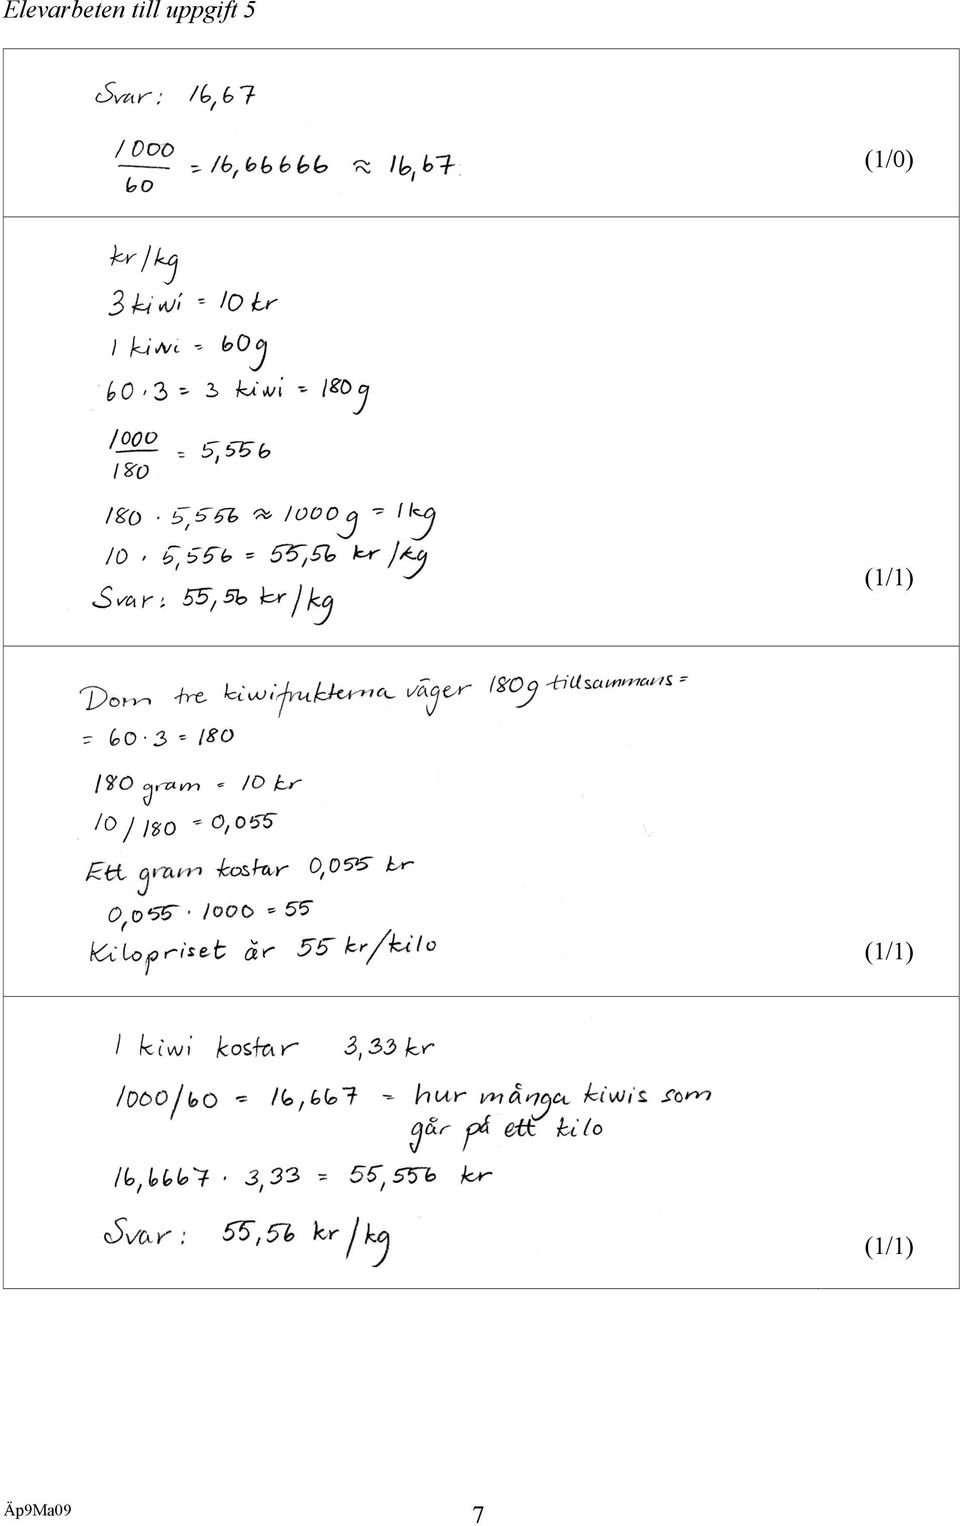 Elevarbeten till uppgift 5
Svar: 16,67
1000/60 = 16,66666 ≈ 16,67
(1/0)
kr/kg
3 kiwi = 10 kr
1 kiwi = 60g
60 · 3 = 3 kiwi = 180g
1000/180 = 5,556
180 · 5,556 ≈ 1000g = 1kg
10 · 5,556 = 55,56 kr/kg
Svar: 55,56 kr/kg
(1/1)
Dom tre kiwifrukterna väger 180g tillsammans =
= 60 · 3 = 180
180 gram = 10 kr
10/180 = 0,055
Ett gram kostar 0,055 kr
0,055 · 1000 = 55
Kilopriset är 55 kr/kilo
(1/1)
1 kiwi kostar 3,33 kr
1000/60 = 16,667 = hur många kiwis som
går på ett kilo
16,6667 · 3,33 = 55,556 kr
Svar: 55,56 kr/kg
(1/1)
Äp9Ma09
7